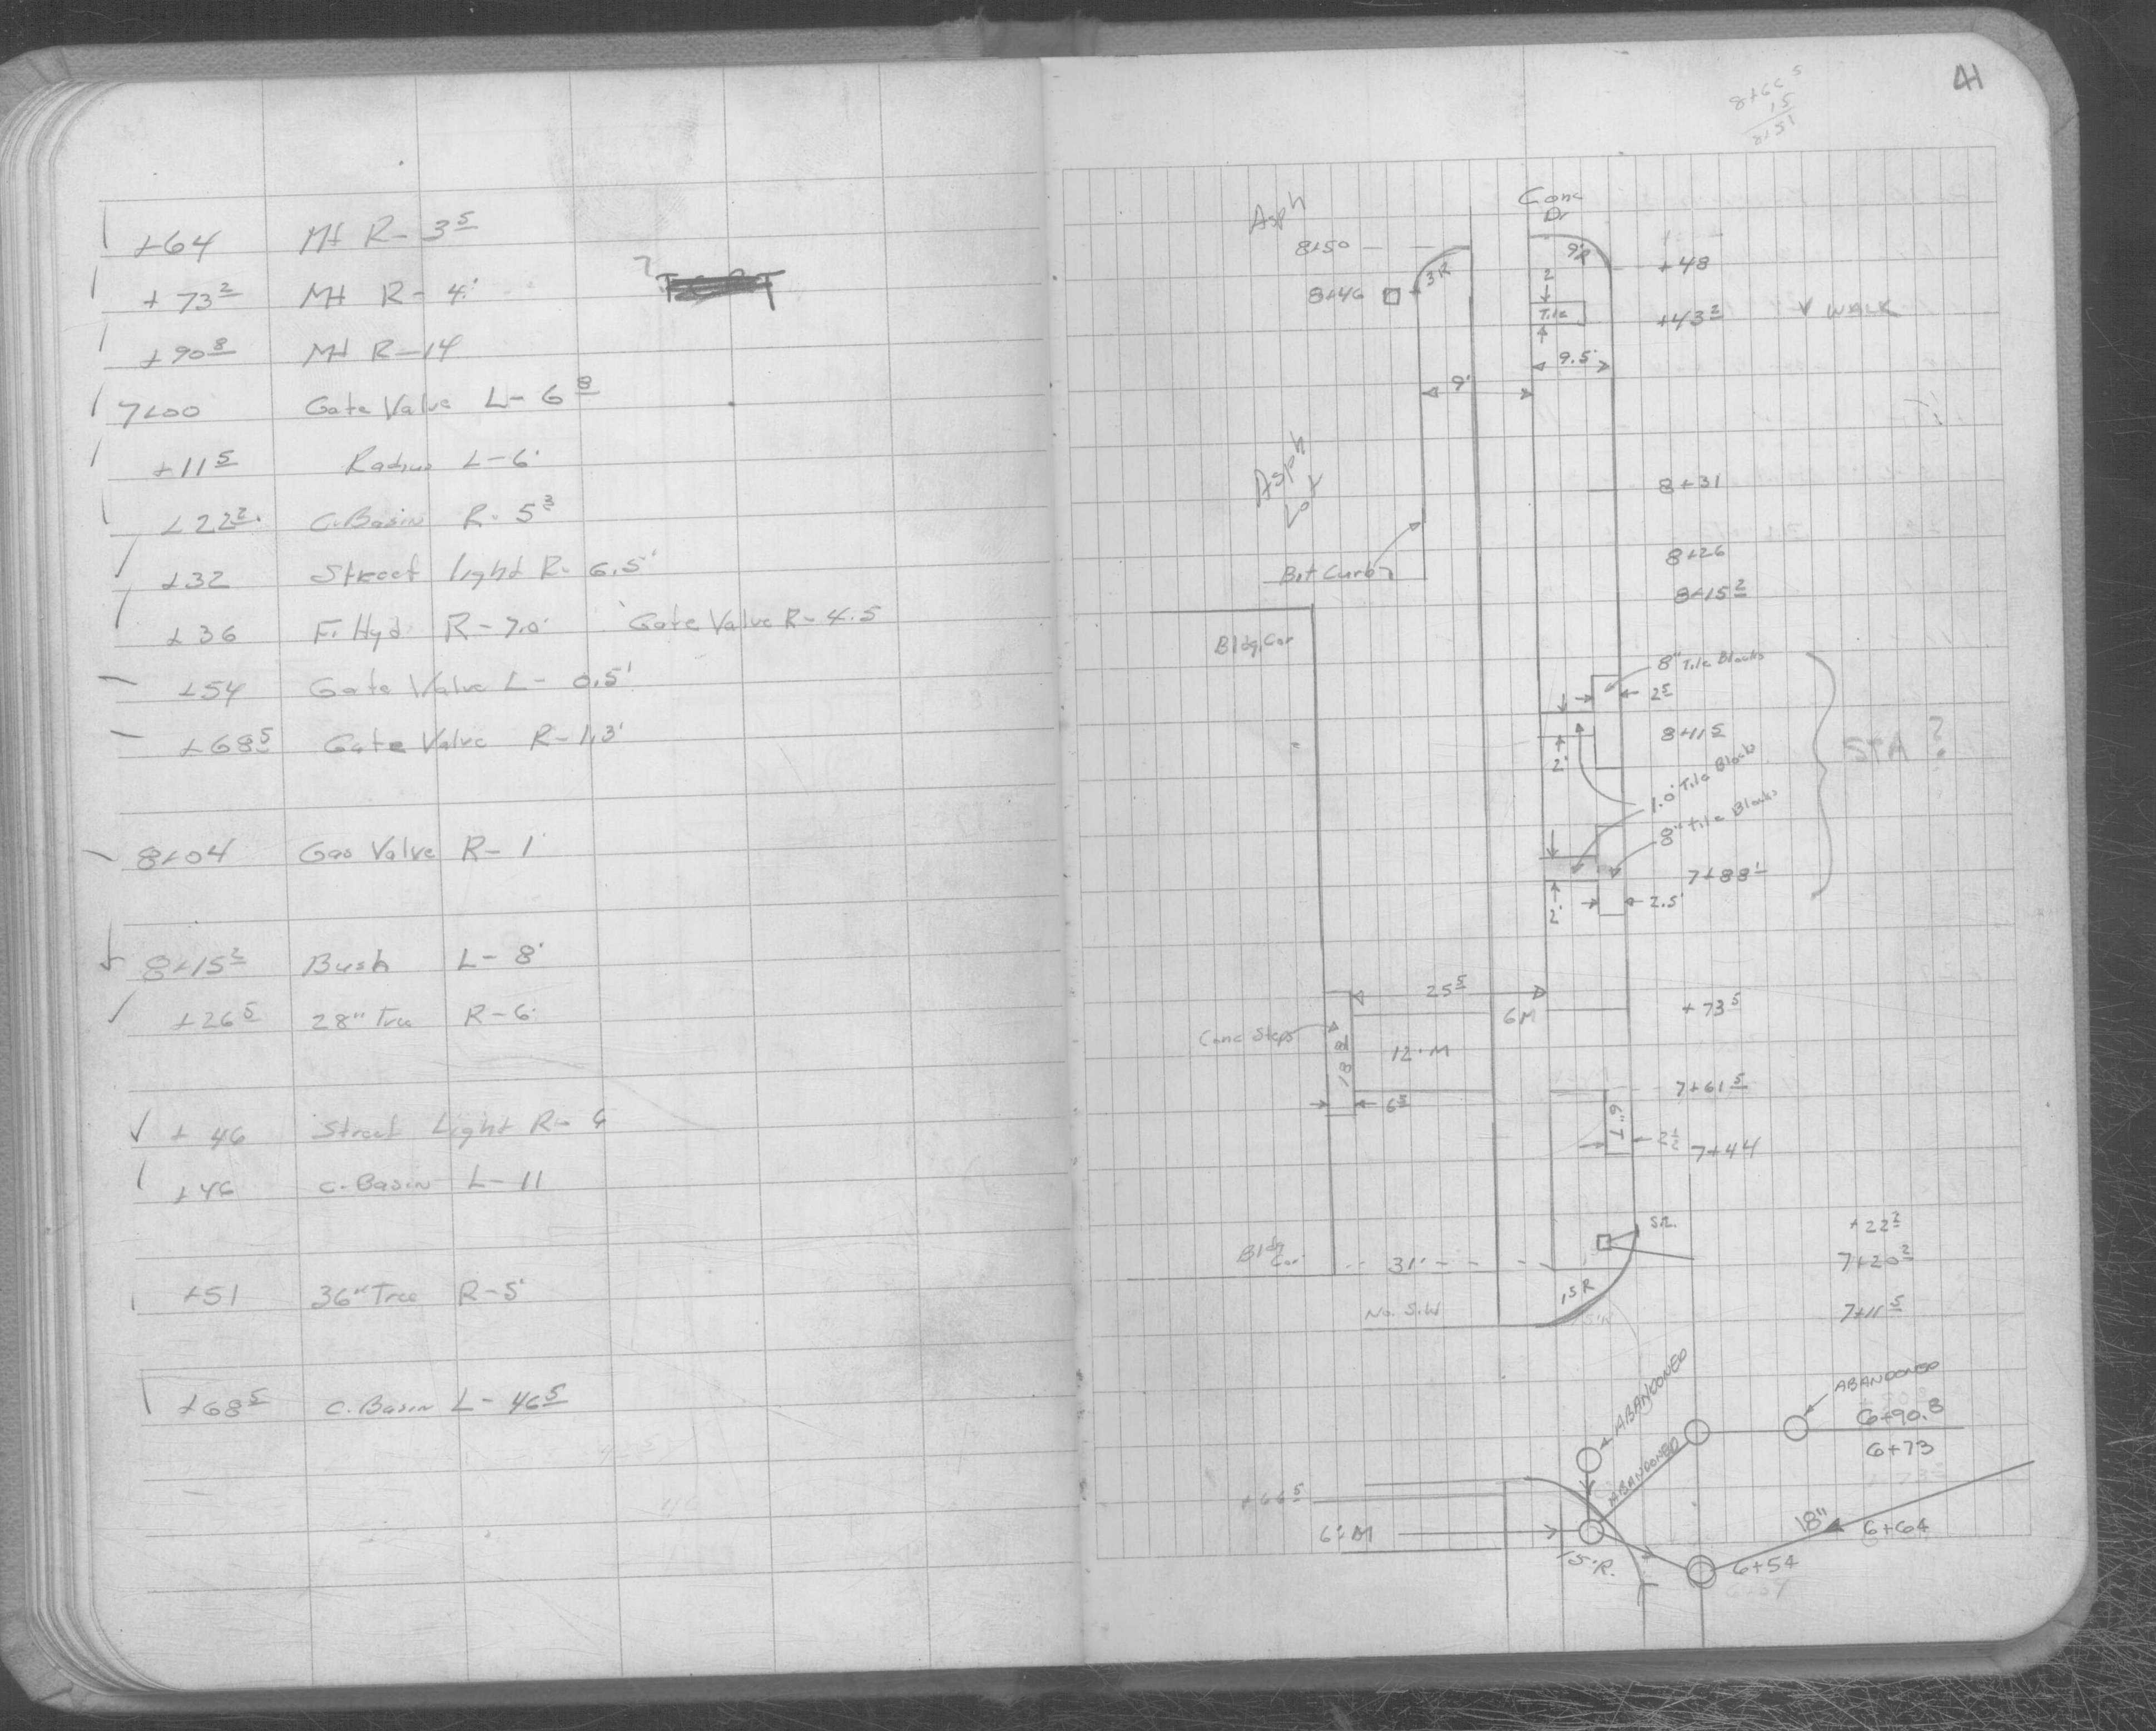 +64 MH R-3⁵
+73² MH R-4'
?
+90⁸ MH R-14
7+00 Gate Valve L-6⁸
+11⁵ Radius L-6'
+22² C.Basin R-5³
+32 Street light R-6.5'
+36 F. Hyd R-7.0' Gate Valve R-4.5
+54 Gate Valve L-0.5'
+68⁵ Gate Valve R-1.3'
8+04 Gas Valve R-1'
8+15² Bush L-8'
+26⁵ 28" Tree R-6'
+46 Street Light R-6
+46 C.Basin L-11
+51 36" Tree R-5'
+68⁵ C.Basin L-46⁵
41
8+66⁵
15
8+51
Asph
Conc
Dr
8+50
3R
9'R
+48
8+46
2
Tile
+43² V WALK
9.5'
9'
Asph
Lot
8+31
8+26
Bit Curb
8+15²
Bldg. Cor
8" Tile Blocks
2⁵
8+11⁵
STA ?
2'
1.0' Tile Blocks
8" Tile Blocks
7+88¹
2'
2.5'
25⁵
6M
+73⁵
Conc Steps
18⁸
12'M
7+61⁵
6⁵
6"T
2½
7+44
S.L.
+22²
Bldg
Cor
31'
7+20²
15R
No. S.W
7+11⁵
ABANDONED
ABANDONED
ABANDONED
6+90.8
6+73
+66⁵
18"
6+64
6'M
15'R.
6+54